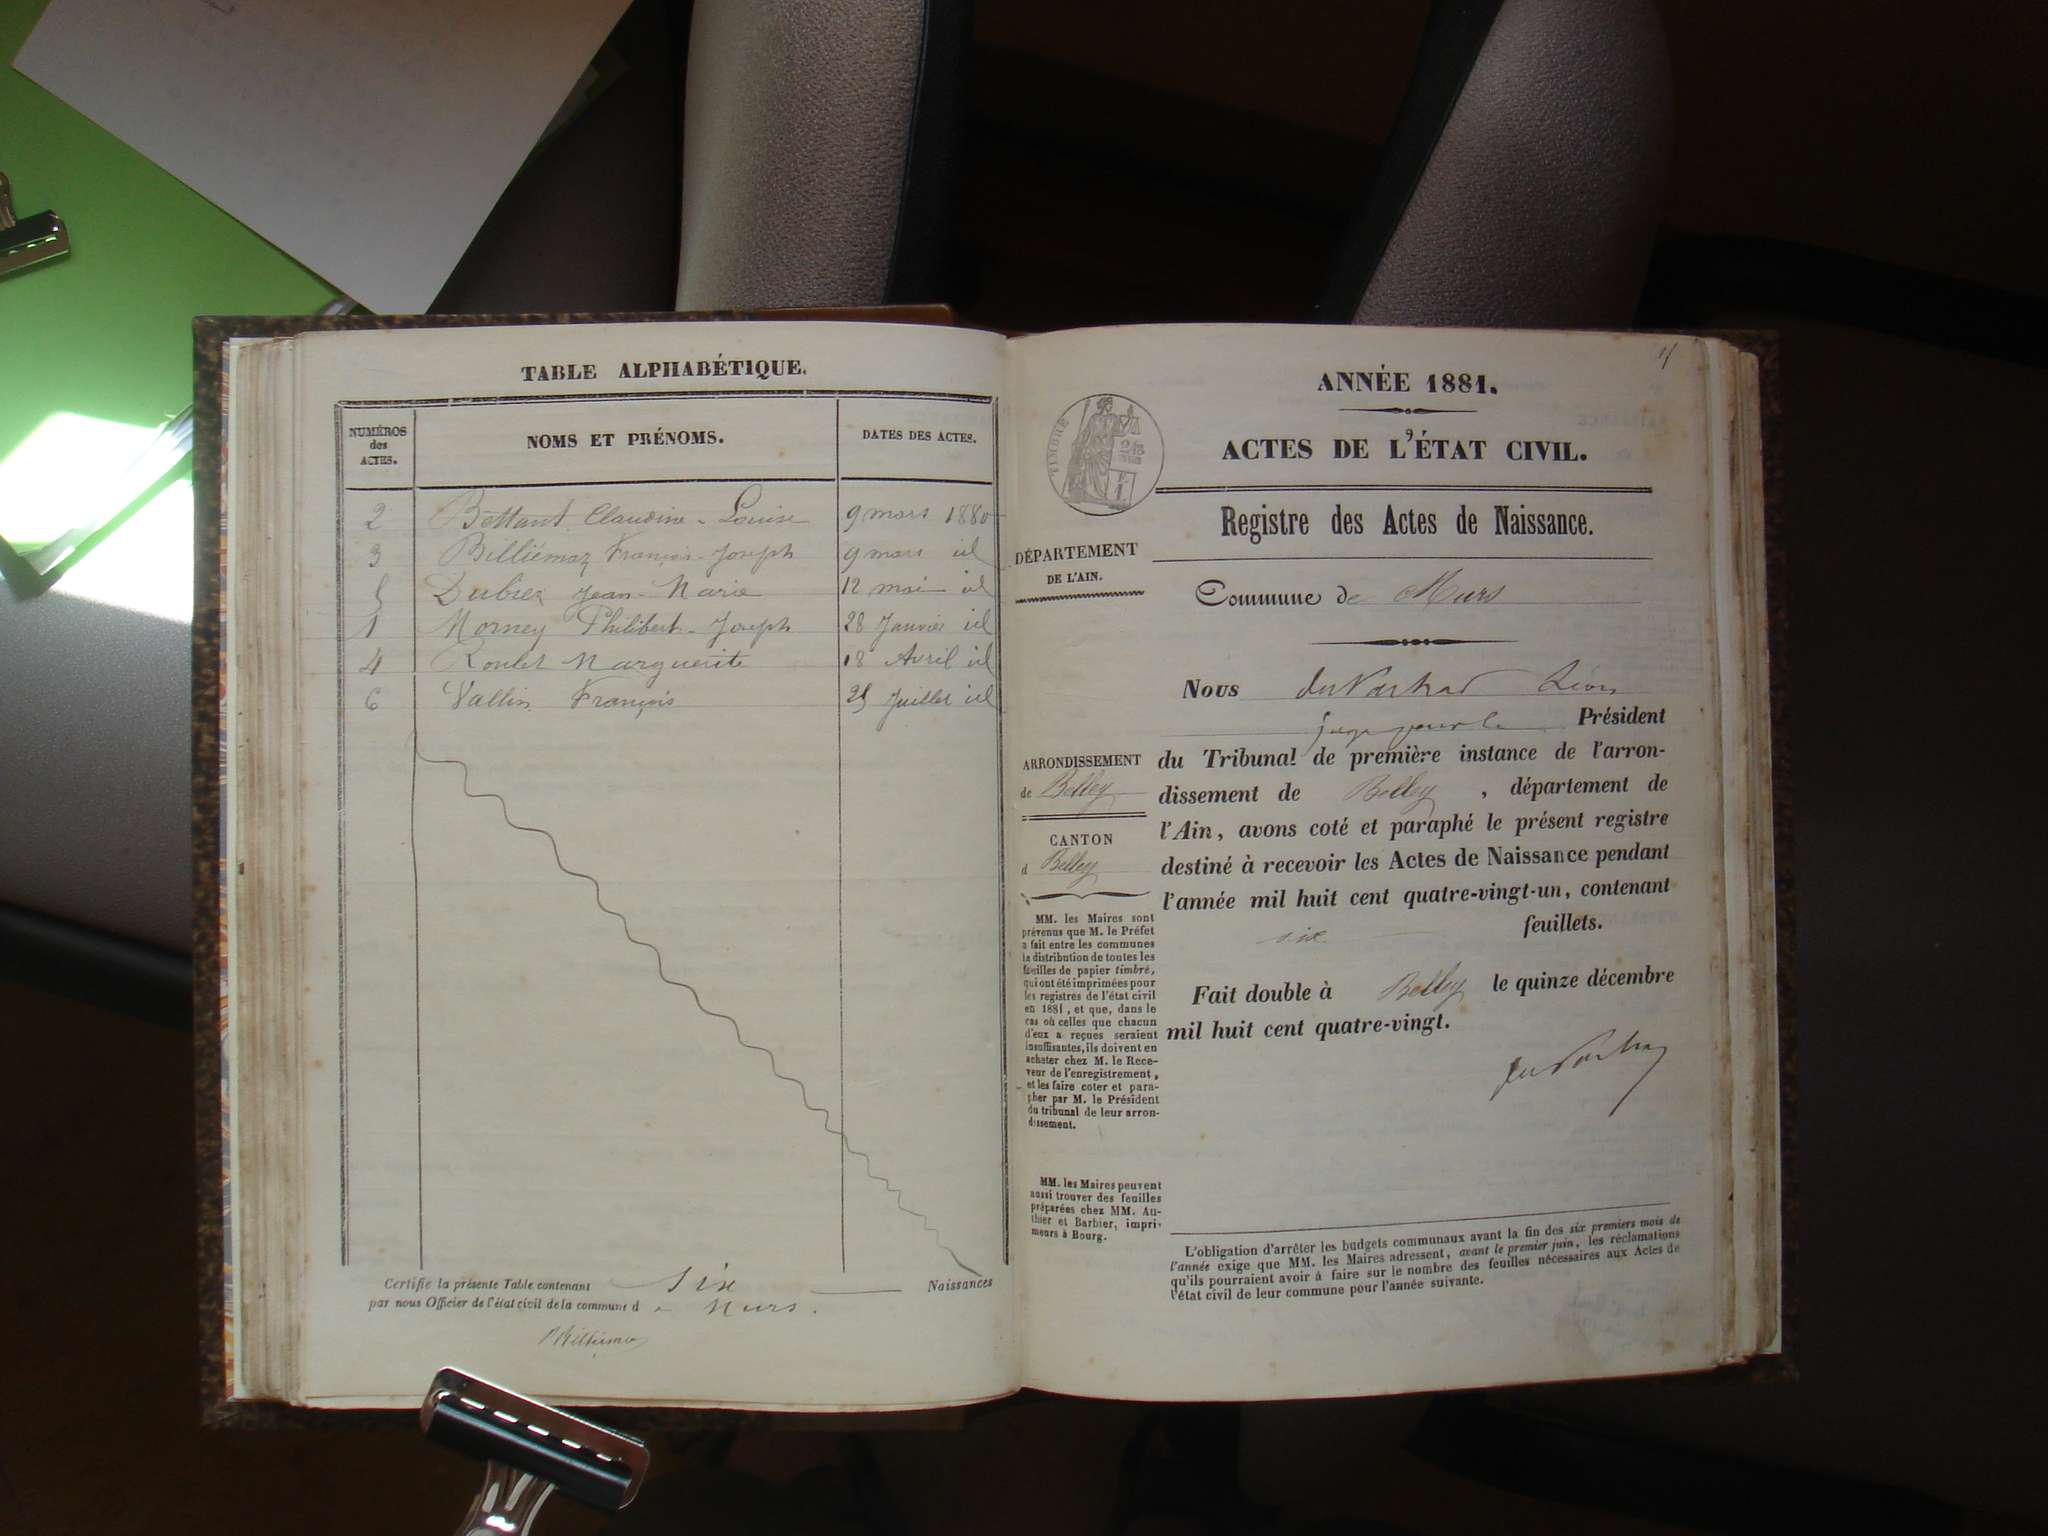 TABLE ALPHABÉTIQUE.
NUMÉROS des ACTES. NOMS ET PRÉNOMS. DATES DES ACTES.
2 Bettant Claudine-Louise 9 mars 1880
3 Billiémaz François-Joseph 9 mars id
5 Dubiez Jean-Marie 12 mai id
1 Morney Philibert-Joseph 28 Janvier id
4 Roulet Marguerite 18 Avril id
6 Vallin François 25 Juillet id
Certifié la présente Table contenant Six Naissances
par nous Officier de l'état civil de la commune de Murs.
Billiémaz
ANNÉE 1881.
ACTES DE L'ÉTAT CIVIL.
TIMBRE
Registre des Actes de Naissance.
DÉPARTEMENT
DE L'AIN.
Commune de Murs
Nous Léon
juge pour le Président
du Tribunal de première instance de l'arron-
dissement de Belley, département de
l'Ain, avons coté et paraphé le présent registre
destiné à recevoir les Actes de Naissance pendant
l'année mil huit cent quatre-vingt-un, contenant
six feuillets.
Fait double à Belley le quinze décembre
mil huit cent quatre-vingt.
ARRONDISSEMENT
de Belley
CANTON
d Belley
MM. les Maires sont
prévenus que M. le Préfet
a fait entre les communes
la distribution de toutes les
feuilles de papier timbré,
qui ont été imprimées pour
les registres de l'état civil
en 1881, et que, dans le
cas où celles que chacun
d'eux a reçues seraient
insuffisantes, ils doivent en
acheter chez M. le Rece-
veur de l'enregistrement,
et les faire coter et para-
pher par M. le Président
du tribunal de leur arron-
dissement.
MM. les Maires peuvent
aussi trouver des feuilles
préparées chez MM. Au-
thier et Barbier, impri-
meurs à Bourg.
L'obligation d'arrêter les budgets communaux avant la fin des six premiers mois de
l'année exige que MM. les Maires adressent, avant le premier juin, les réclamations
qu'ils pourraient avoir à faire sur le nombre des feuilles nécessaires aux Actes de
l'état civil de leur commune pour l'année suivante.